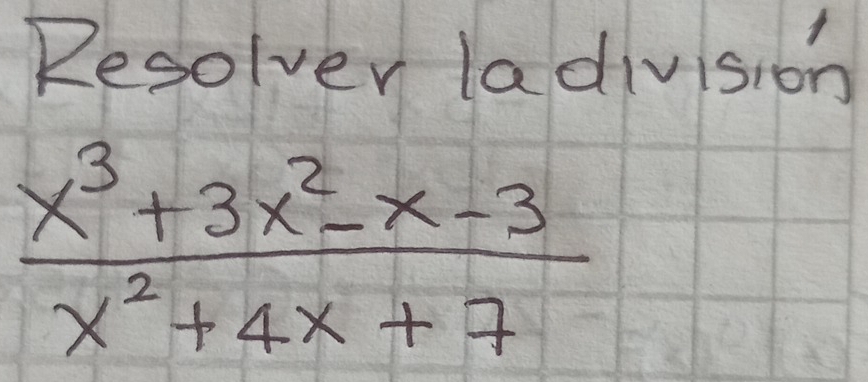 Resolver la división
x³ + 3x² - x - 3
x² + 4x + 7